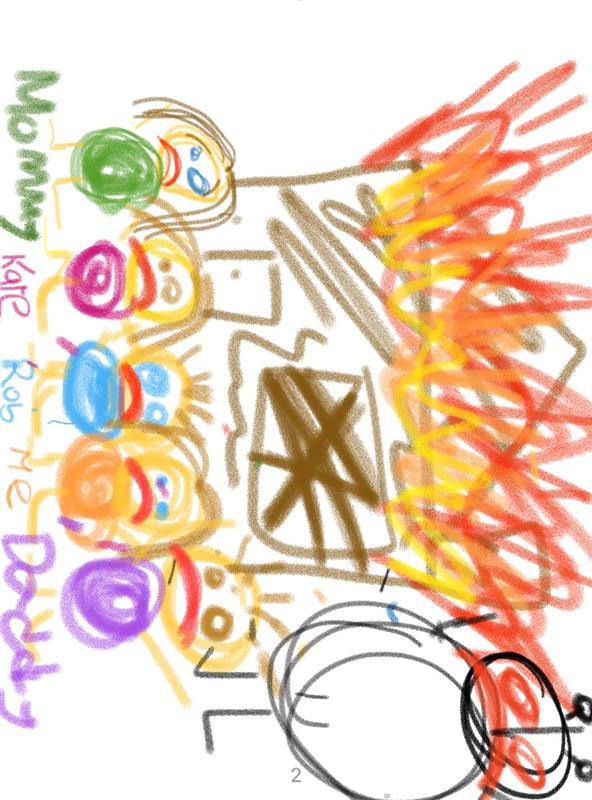 Mommy Kate Rob Me Daddy
2